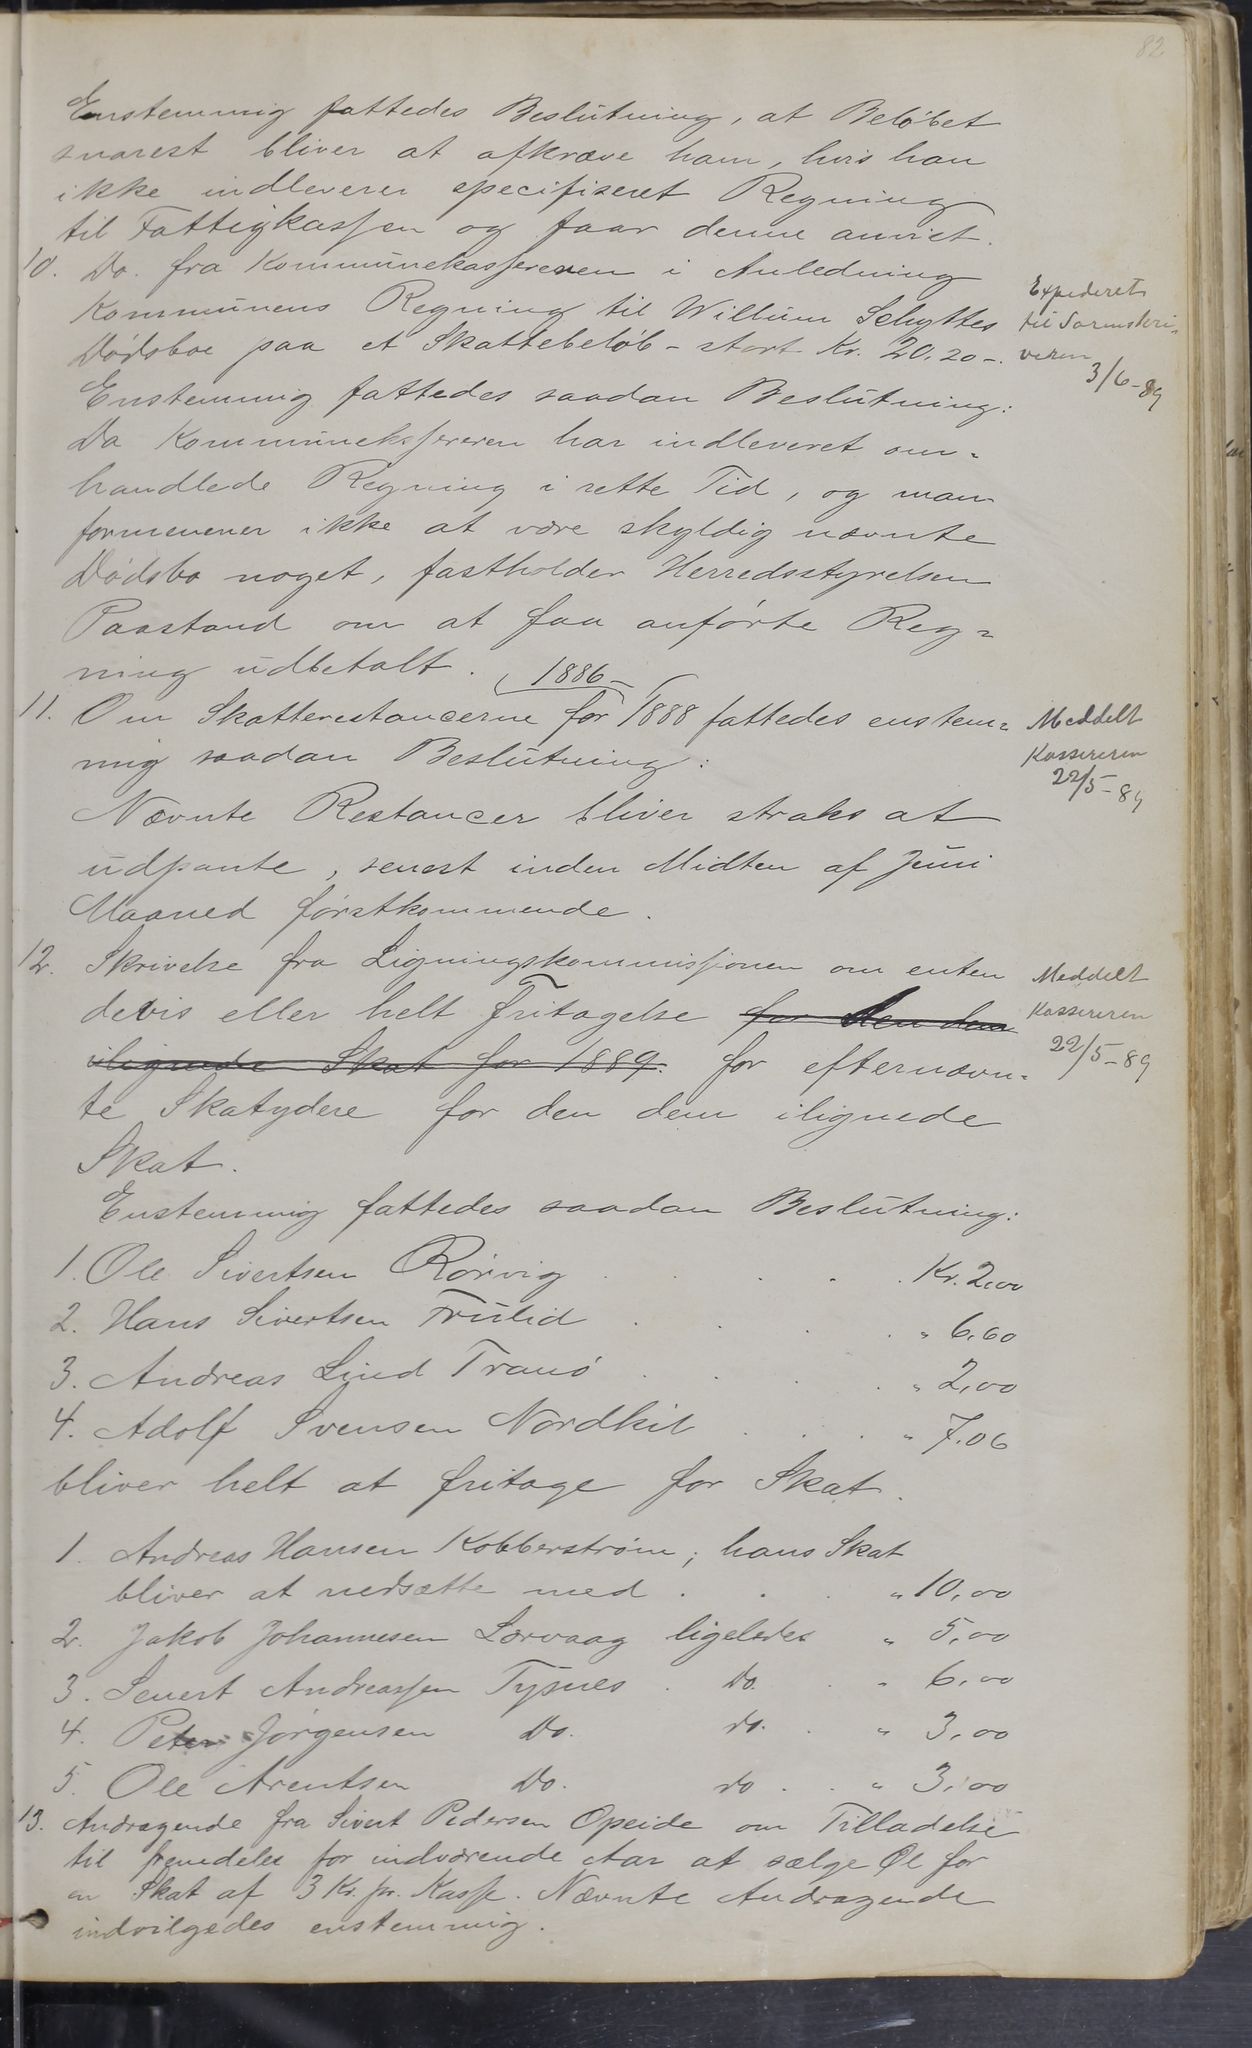 82
Enstemmig fattedes Beslutning, at Beløbet
snarest bliver at afkræve ham, hvis han
ikke indleverer specifiseret Regning
til Fattigkassen og faar denne anvist.
10. Do. fra Kommunekassereren i Anledning
Kommunens Regning til Willum Schyttes
Dødsboe paa et Skattebeløb - stort Kr. 20.20 -.
Expederet
til Sorenskri-
veren
3/6-89
Enstemmig fattedes saadan Beslutning:
Da Kommunekssereren har indleveret om-
handlede Regning i rette Tid, og man
formenener ikke at være skyldig nævnte
Dødsbo noget, fastholder Herredsstyrelsen
Paastand om at faa anførte Reg-
ning udbetalt.
1886-
11. Om Skatterestancerne for 1888 fattedes enstem-
mig saadan Beslutning:
Meddelt
Kassereren
22/5-89
Nævnte Restancer bliver straks at
udpante, senest inden Midten af Juni
Maaned førstkommende.
12. Skrivelse fra Ligningskommissjonen om enten
delvis eller helt Fritagelse for den dem
ilignede Skat for 1889. for efternævn-
te Skatydere for den dem ilignede
Skat.
Meddelt
Kassereren
22/5-89
Enstemmig fattedes saadan Beslutning:
1. Ole Sivertsen Rørvig . . . . Kr. 2,00
2. Hans Sivertsen Trulid . . . . " 6.60
3. Andreas Lind Tranø . . . . " 2,00
4. Adolf Svensen Nordkil . . . " 7.06
bliver helt at fritage for Skat.
1. Andreas Hansen Kobberstrøm; hans Skat
bliver at nedsætte med . . . " 10,00
2. Jakob Johannesen Lørvaag ligeledes " 5,00
3. Senert Andreassen Tysnes . Do. . " 6.00
4. Peter Jørgensen Do. do. . " 3,00
5. Ole Arentsen Do. do . . " 3.00
13. Andragende fra Sivert Pedersen Opeide om Tilladelse
til fremdeles for indværende Aar at sælge Øl for
en Skat af 3 Kr. pr. Kasse. Nævnte Andragende
indvilgedes enstemmig.